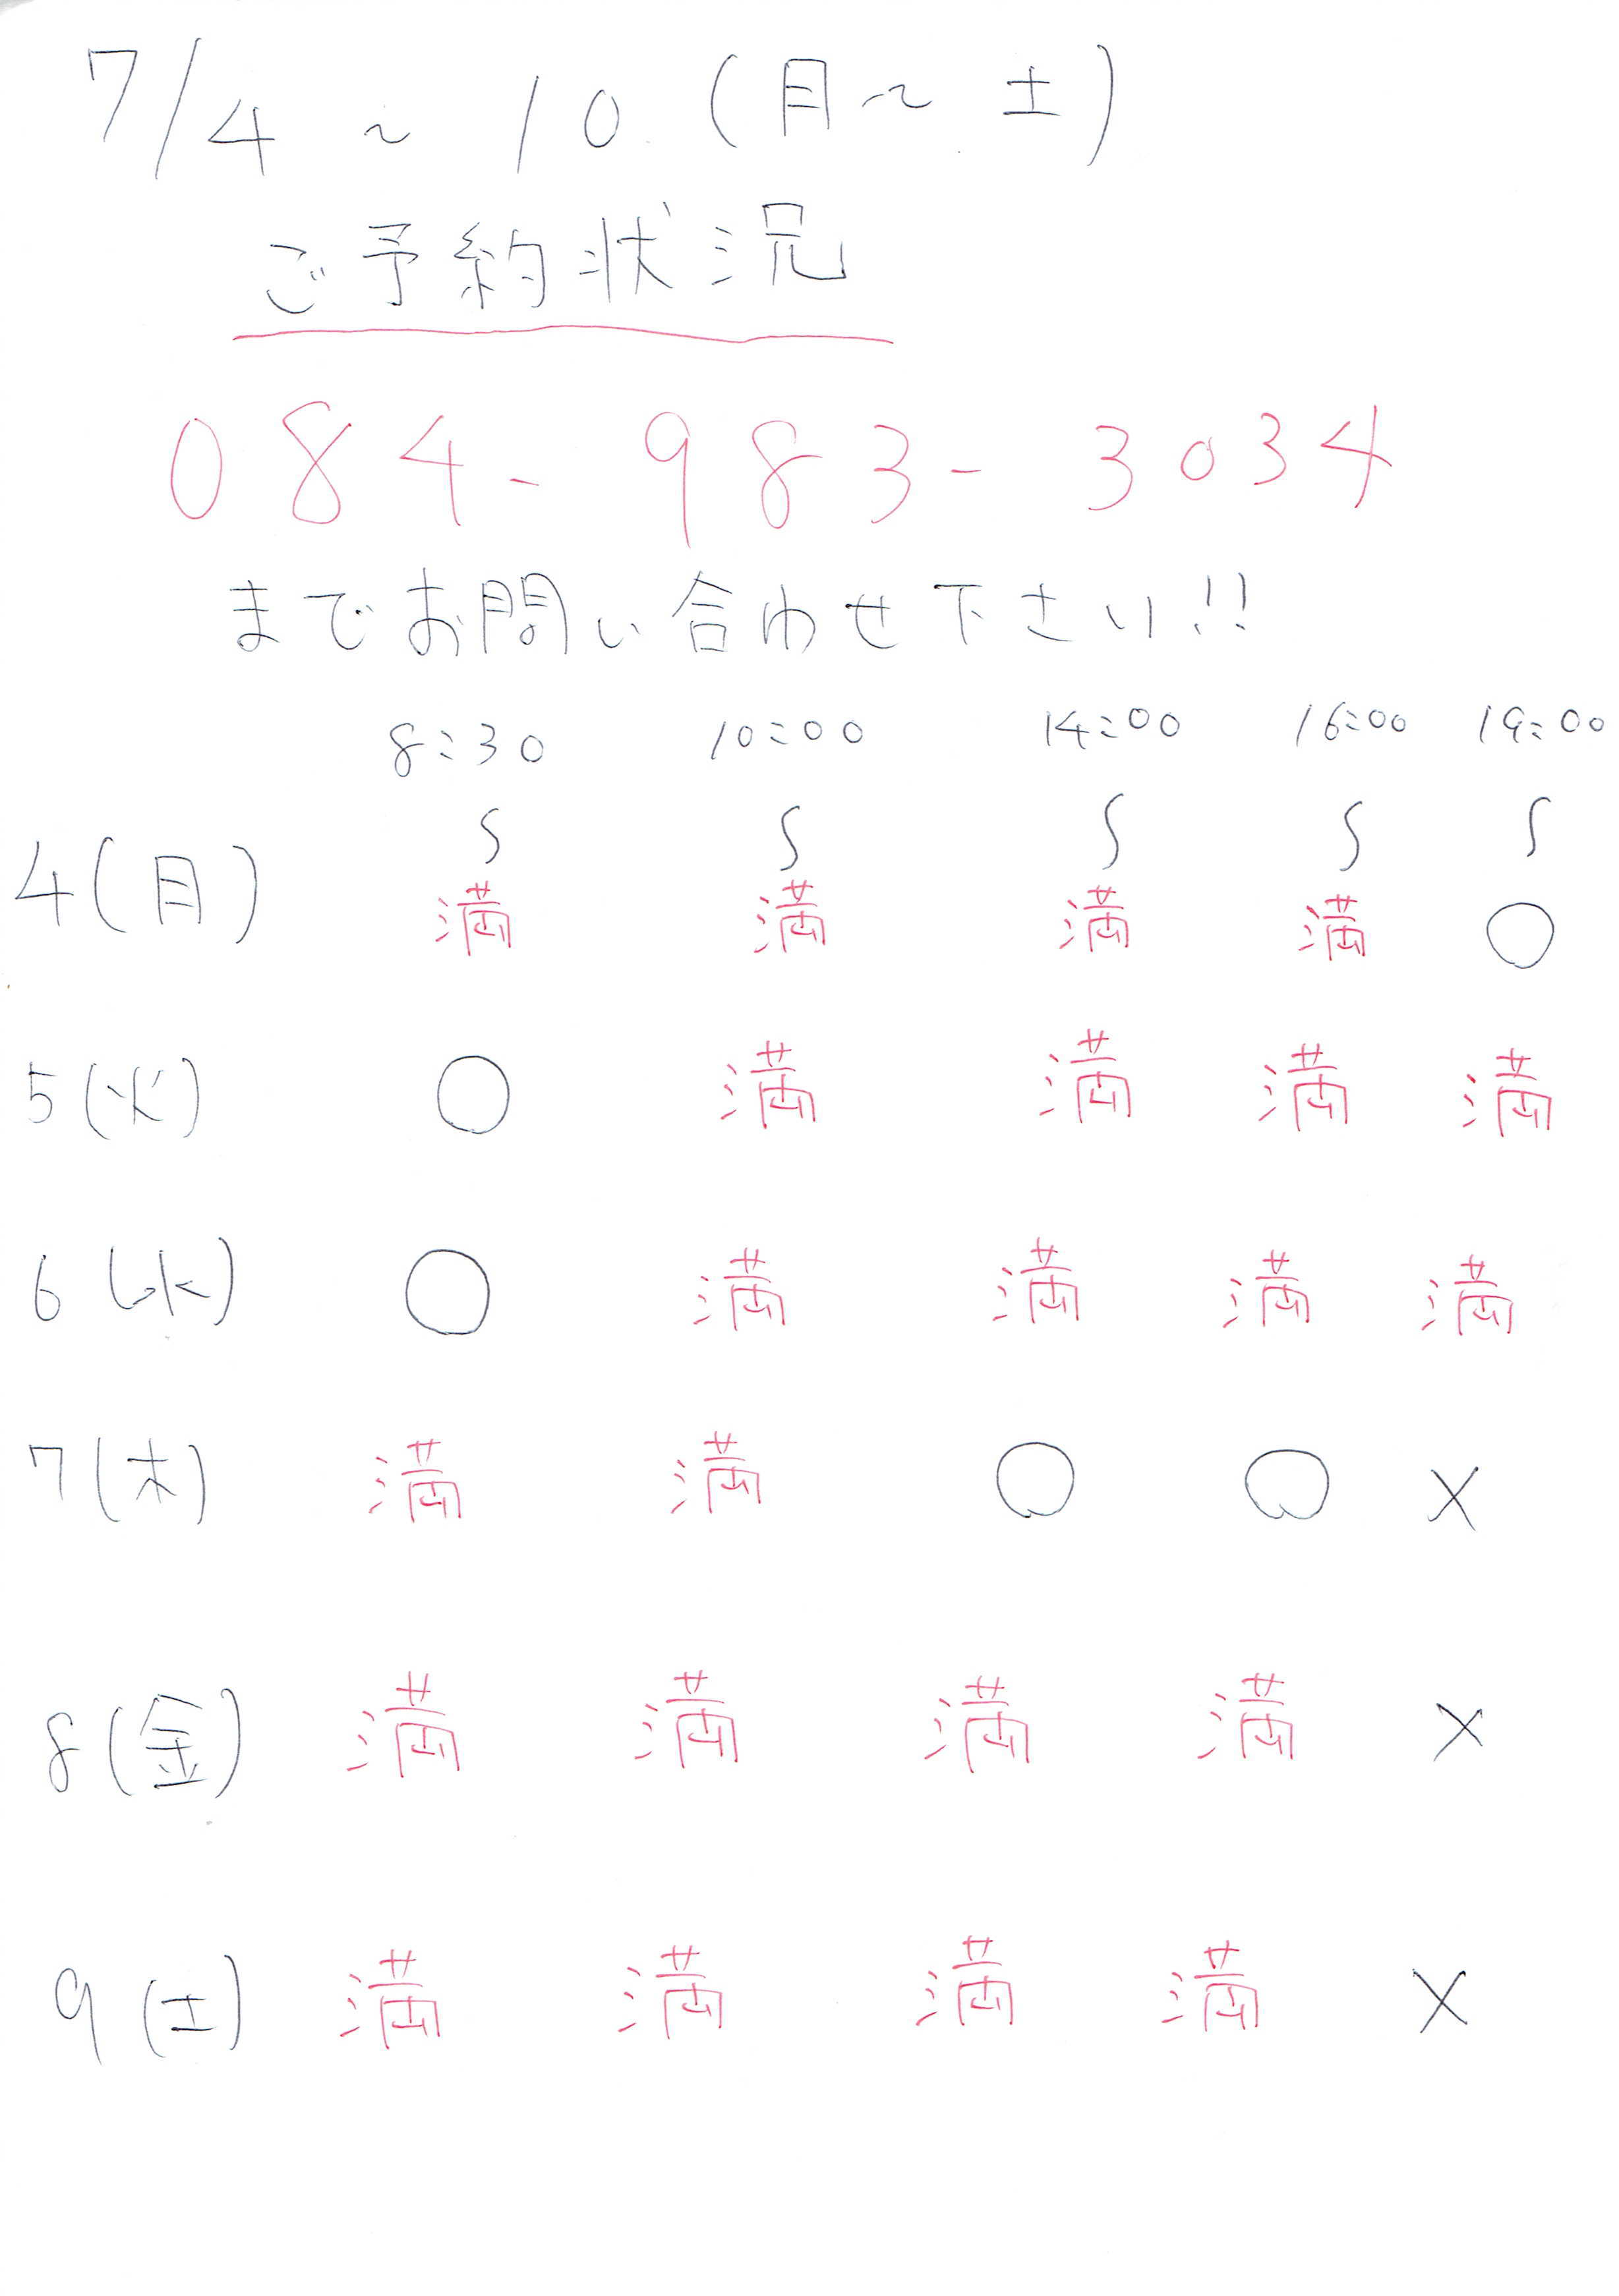 7/4 ~ 10 (月~土)
ご予約状況
084-983-3034
までお問い合わせ下さい!!
8:30 10:00 14:00 16:00 19:00
4(月) 〜 〜 〜 〜 〜
満 満 満 満 ○
5(火) ○ 満 満 満 満
6(水) ○ 満 満 満 満
7(木) 満 満 ○ ○ ×
8(金) 満 満 満 満 ×
9(土) 満 満 満 満 ×